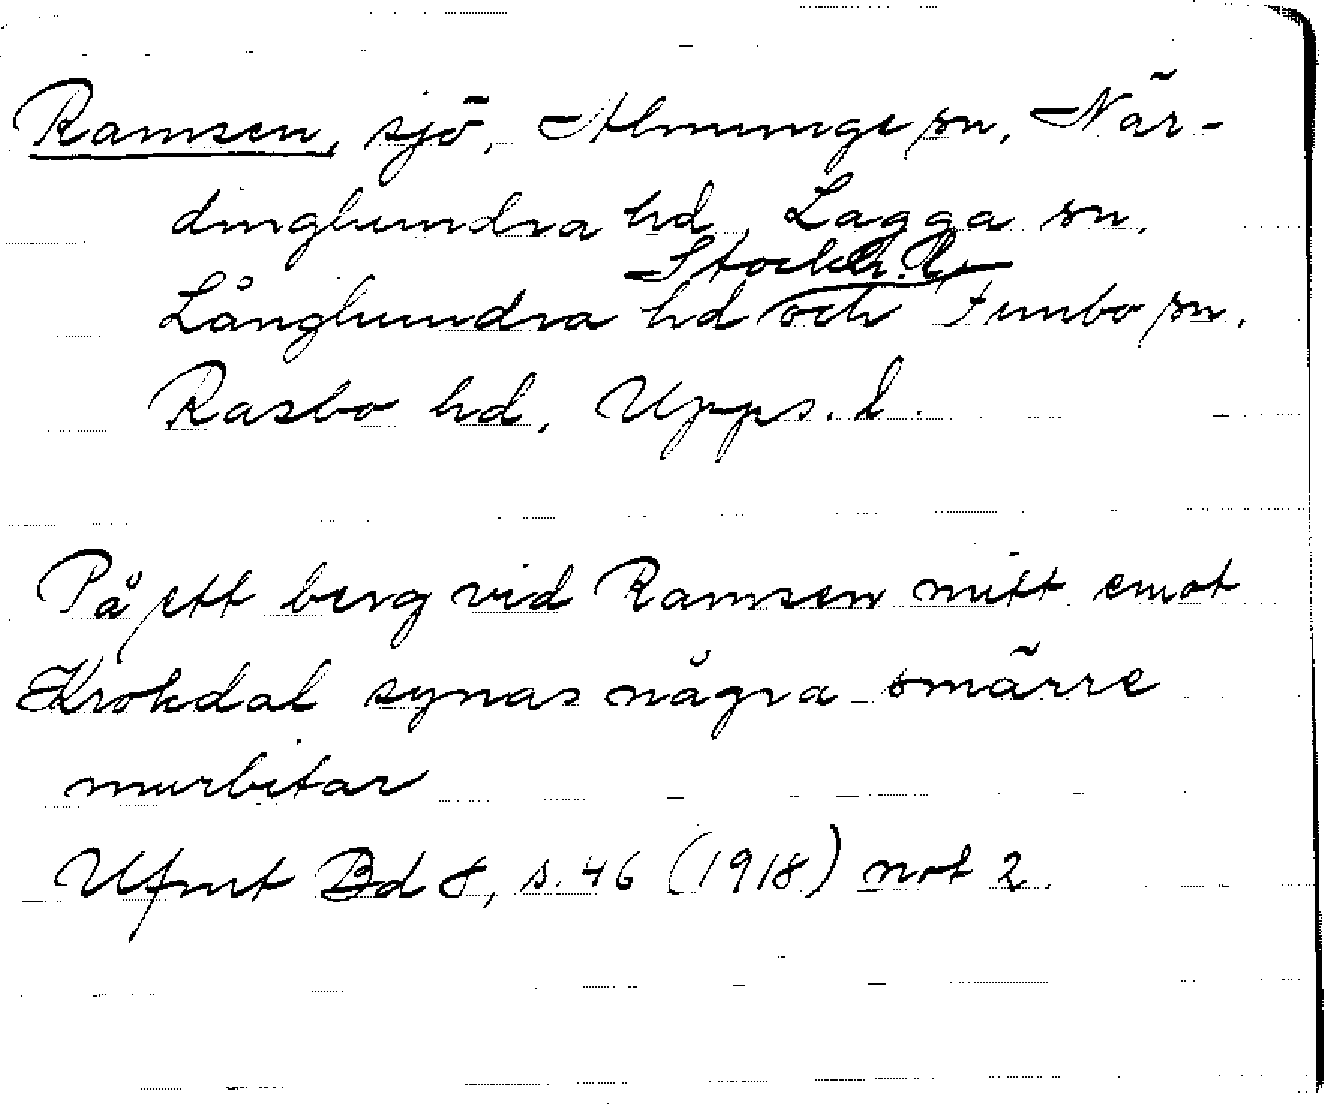 Ramsen, sjö, Almunge sn, När-
dinghundra hd, Lagga sn,
Stockh. l.
Långhundra hd och Funbo sn,
Rasbo hd, Upps. l.
På ett berg vid Ramsen mitt emot
Krokdal synas några smärre
murbitar
Ufmt Bd 8, s. 46 (1918) not 2.